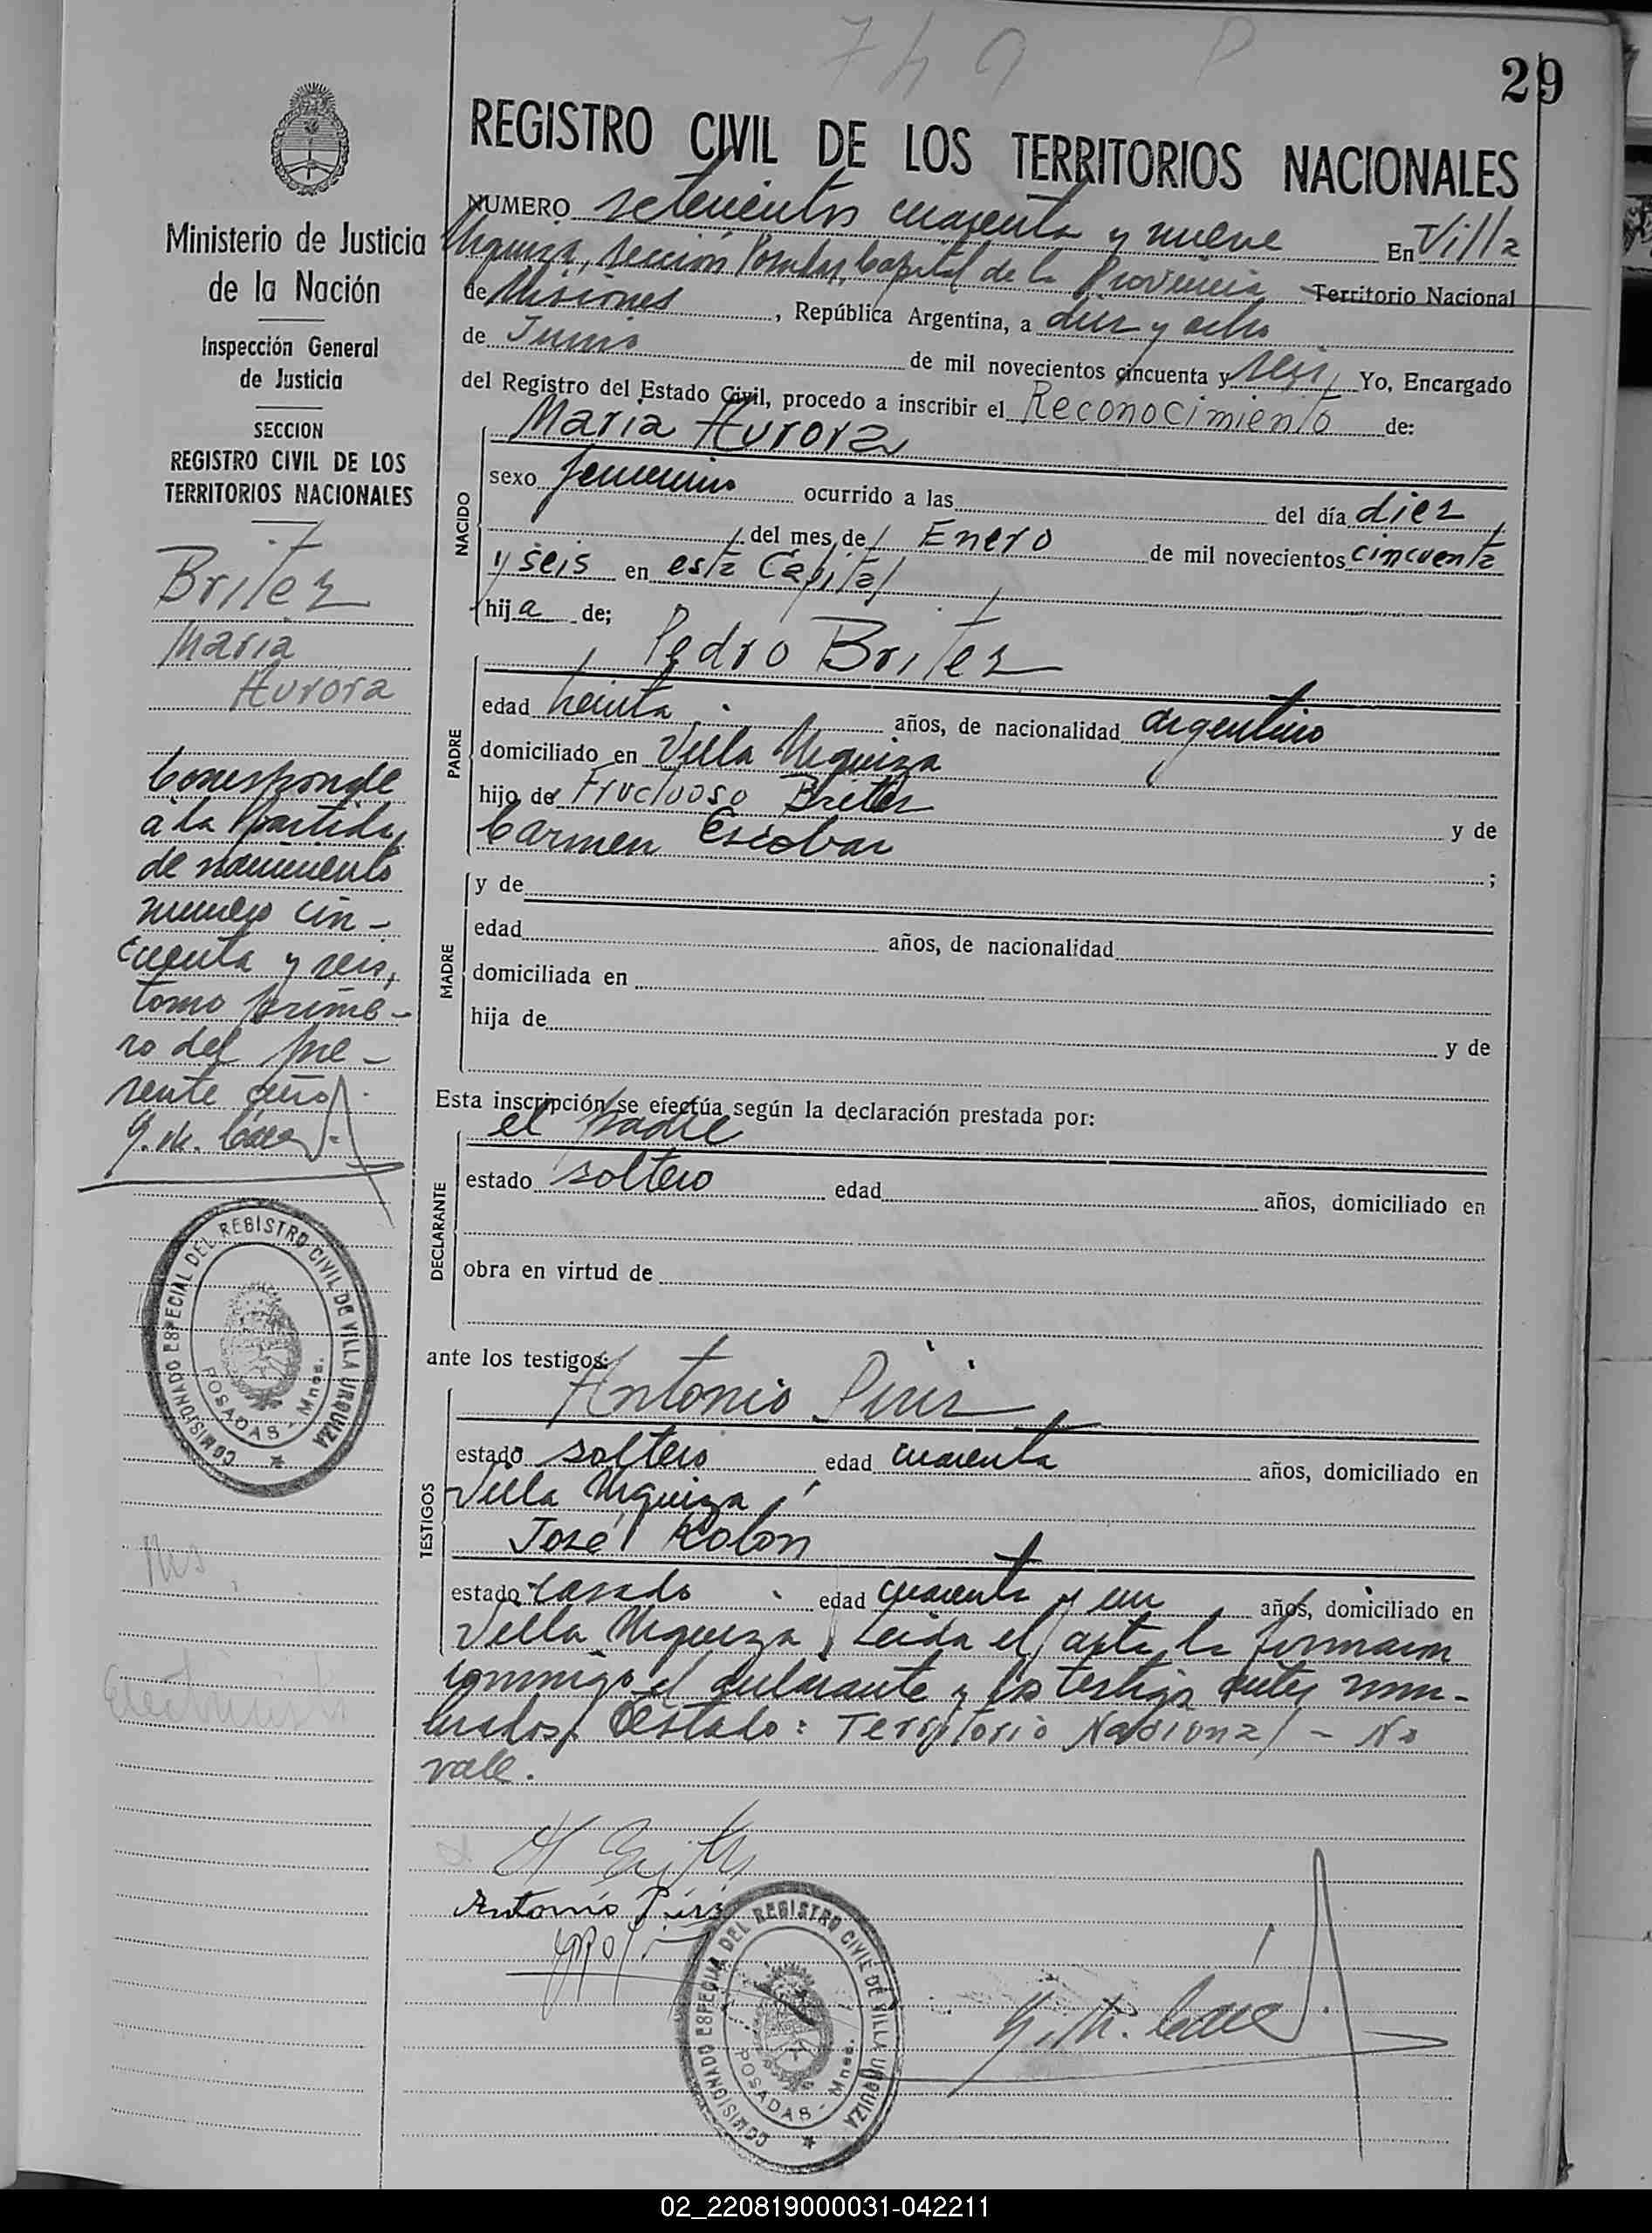 749 P
29
REGISTRO CIVIL DE LOS TERRITORIOS NACIONALES
NUMERO setecientos cuarenta y nueve En Villa
Urquiza, sección Posadas, Capital de la Provincia Territorio Nacional
de Misiones, República Argentina, a diez y ocho
de Junio de mil novecientos cincuenta y seis, Yo, Encargado
del Registro del Estado Civil, procedo a inscribir el Reconocimiento de:
Maria Aurora
NACIDO
sexo femenino ocurrido a las del día diez
del mes de Enero de mil novecientos cincuenta
y seis en esta Capital
hija de;
Pedro Britez
PADRE
edad treinta años, de nacionalidad argentino
domiciliado en Villa Urquiza
hijo de Fructuoso Britez y de
Carmen Escobar ;
MADRE
y de
edad años, de nacionalidad
domiciliada en
hija de y de
Esta inscripción se efectúa según la declaración prestada por:
el padre
DECLARANTE
estado soltero edad años, domiciliado en
obra en virtud de
ante los testigos:
Antonio Piris
TESTIGOS
estado soltero edad cuarenta años, domiciliado en
Villa Urquiza,
José Rolon
estado casado edad cuarenta y un años, domiciliado en
Villa Urquiza, Leida el acta, la firmaron
conmigo el declarante y los testigos antes nom-
brados. Testado: Territorio Nacional - No
vale.
Antonio Piris
Ministerio de Justicia
de la Nación
Inspección General
de Justicia
SECCION
REGISTRO CIVIL DE LOS
TERRITORIOS NACIONALES
Britez
Maria
Aurora
Corresponde
a la partida
de nacimiento
numero cin-
cuenta y seis,
tomo prime-
ro del pre-
sente año.
COMISIONADO ESPECIAL DEL REGISTRO CIVIL DE VILLA URQUIZA
POSADAS - Mnes.
COMISIONADO ESPECIAL DEL REGISTRO CIVIL DE VILLA URQUIZA
POSADAS - Mnes.
02_220819000031-042211